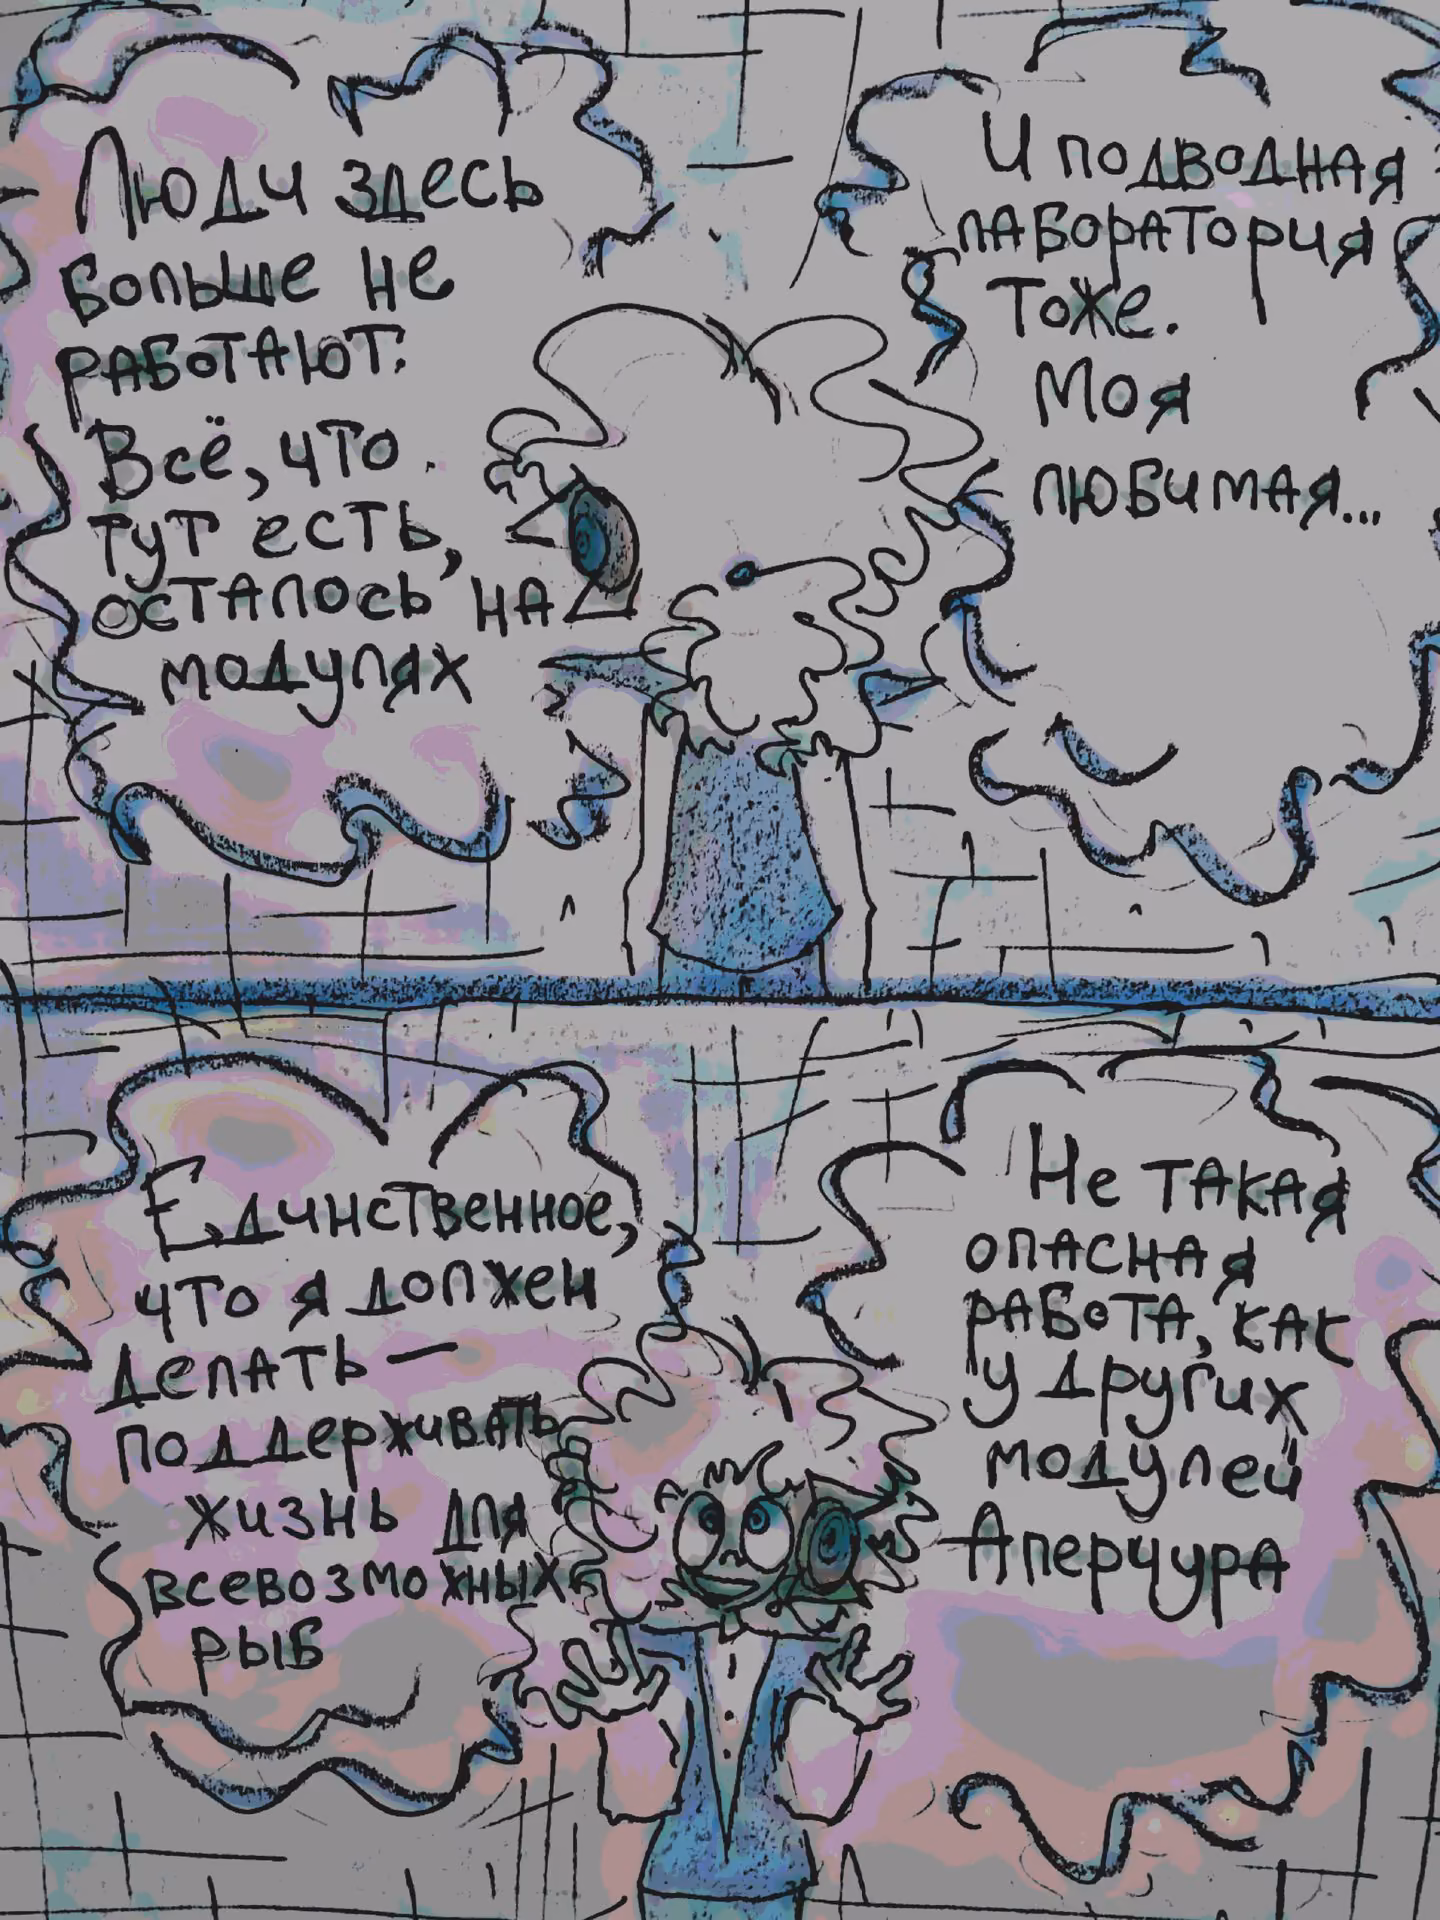 Люди здесь
больше не
работают.
Всё, что
тут есть,
осталось на
модулях
И подводная
лаборатория
тоже.
Моя
любимая...
Единственное,
что я должен
делать —
поддерживать
жизнь для
всевозможных
рыб
Не такая
опасная
работа, как
у других
модулей
Аперчура